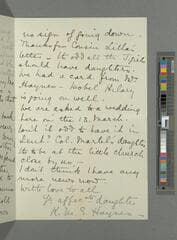 no sign of going down.
Thanks for Cousin Lilla's
letter - odd all the
should have daughters.
We had a card from Mr
Haynes - Mabel Hilary
is going on well.
We are asked to a wedding
here on the 13. March.
Isn't it odd to have it in
Lent? Col. Martel's daughter
it is to be at the little church
close by us -
I don't think I have any
more news now.
With love to all
Yr affecte daughter
Haynes